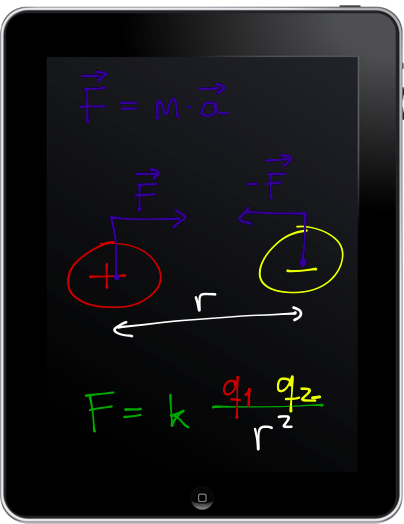 F⃗ = m · a⃗
F⃗ -F⃗
+ −
r
F = k q₁ q₂ / r²